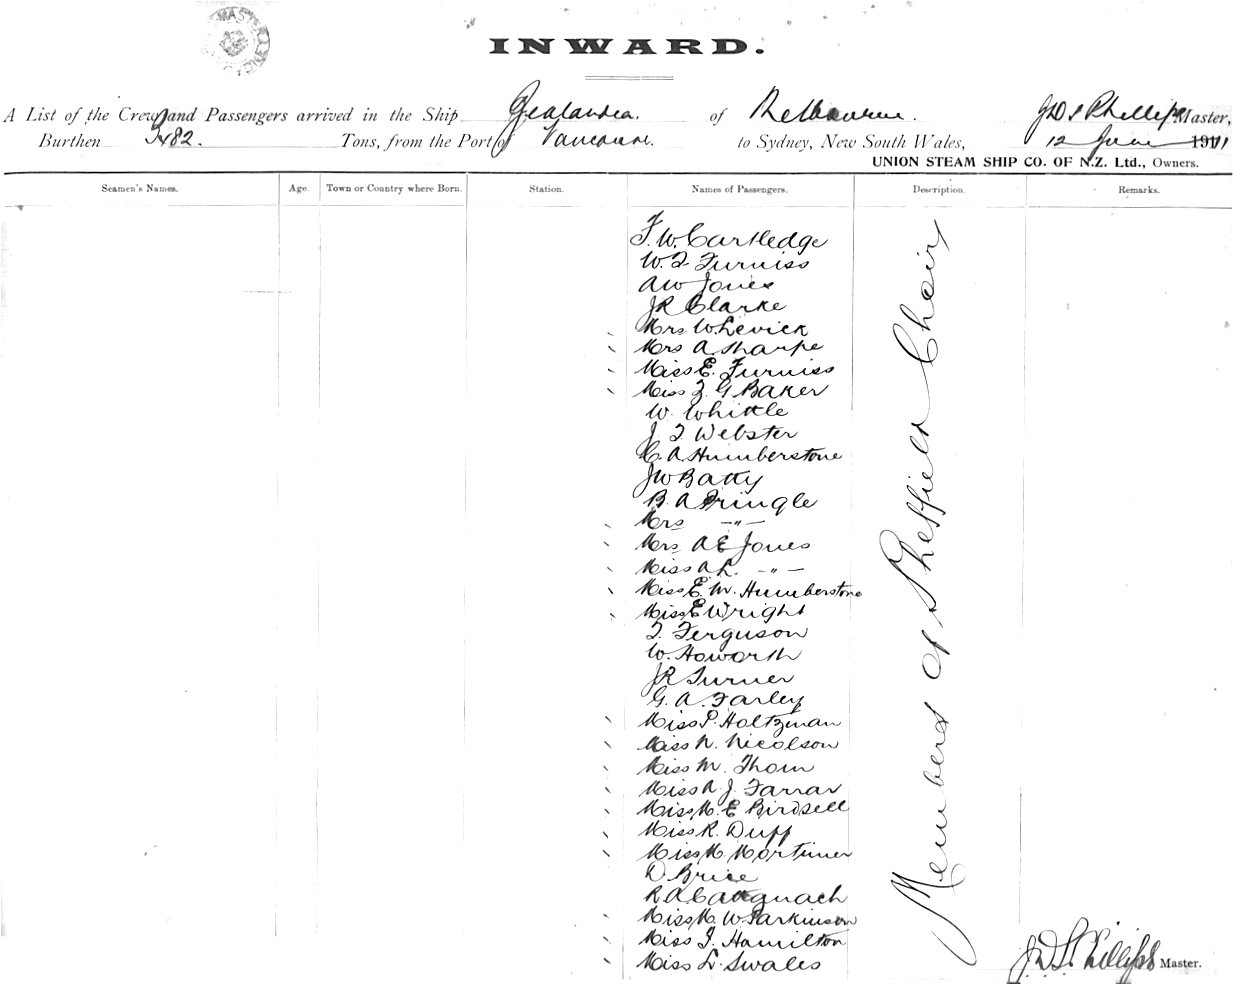 INWARD.
A List of the Crew and Passengers arrived in the Ship Zealandia of Melbourne. J D S Phillips Master,
Burthen 3482. Tons, from the Port of Vancouver. to Sydney, New South Wales, 12 June 1911
UNION STEAM SHIP CO. OF N.Z. Ltd., Owners.
Seamen's Names. Age. Town or Country where Born. Station. Names of Passengers. Description. Remarks.
F. W. Cartledge
W. F. Furniss
A W Jones
J R Clarke
Mrs W. Levick
Mrs A Sharpe
Miss E. Furniss
Miss F. G Baker
W. Whittle
J F Webster
C. A Humberstone
J W Batty
B. A Pringle
Mrs —"—
Mrs A E Jones
Miss A L. —"—
Miss E. M. Humberstone
Miss E Wright
T. Ferguson
W. Howorth
J R Turner
G. A. Farley
Miss P. Holtzman
Miss N. Nicolson
Miss M. Thom
Miss A J. Farrar
Miss M. E Birdsell
Miss R. Duff
Miss M. Mortimer
D Brice
R A
Miss M. W. Parkinson
Miss J. Hamilton
Miss L. Swales
Members of Sheffield Choir
J D S Phillips Master.